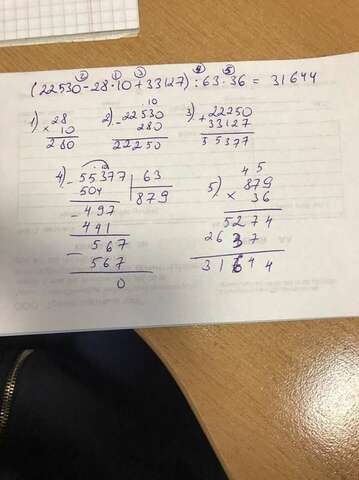 ② ① ③ ④ ⑤
(22530-28·10+33127):63·36 = 31644
1) × 28
10
280
2) - 22530
280
22250
3) + 22250
33127
55377
4) - 55377 | 63
504 | 879
- 497
441
- 567
567
0
4 5
5) 879
× 36
5274
2637
31644